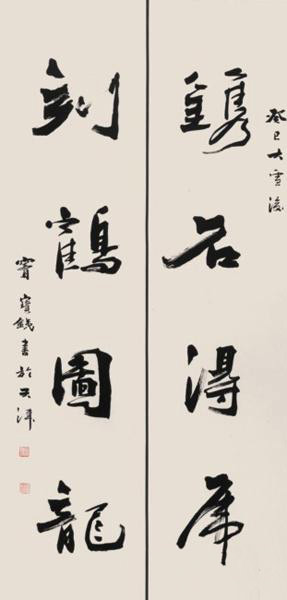 癸巳大雪後
鐫石得虎
刻鶴圖龍
竇寶鐵書於天津